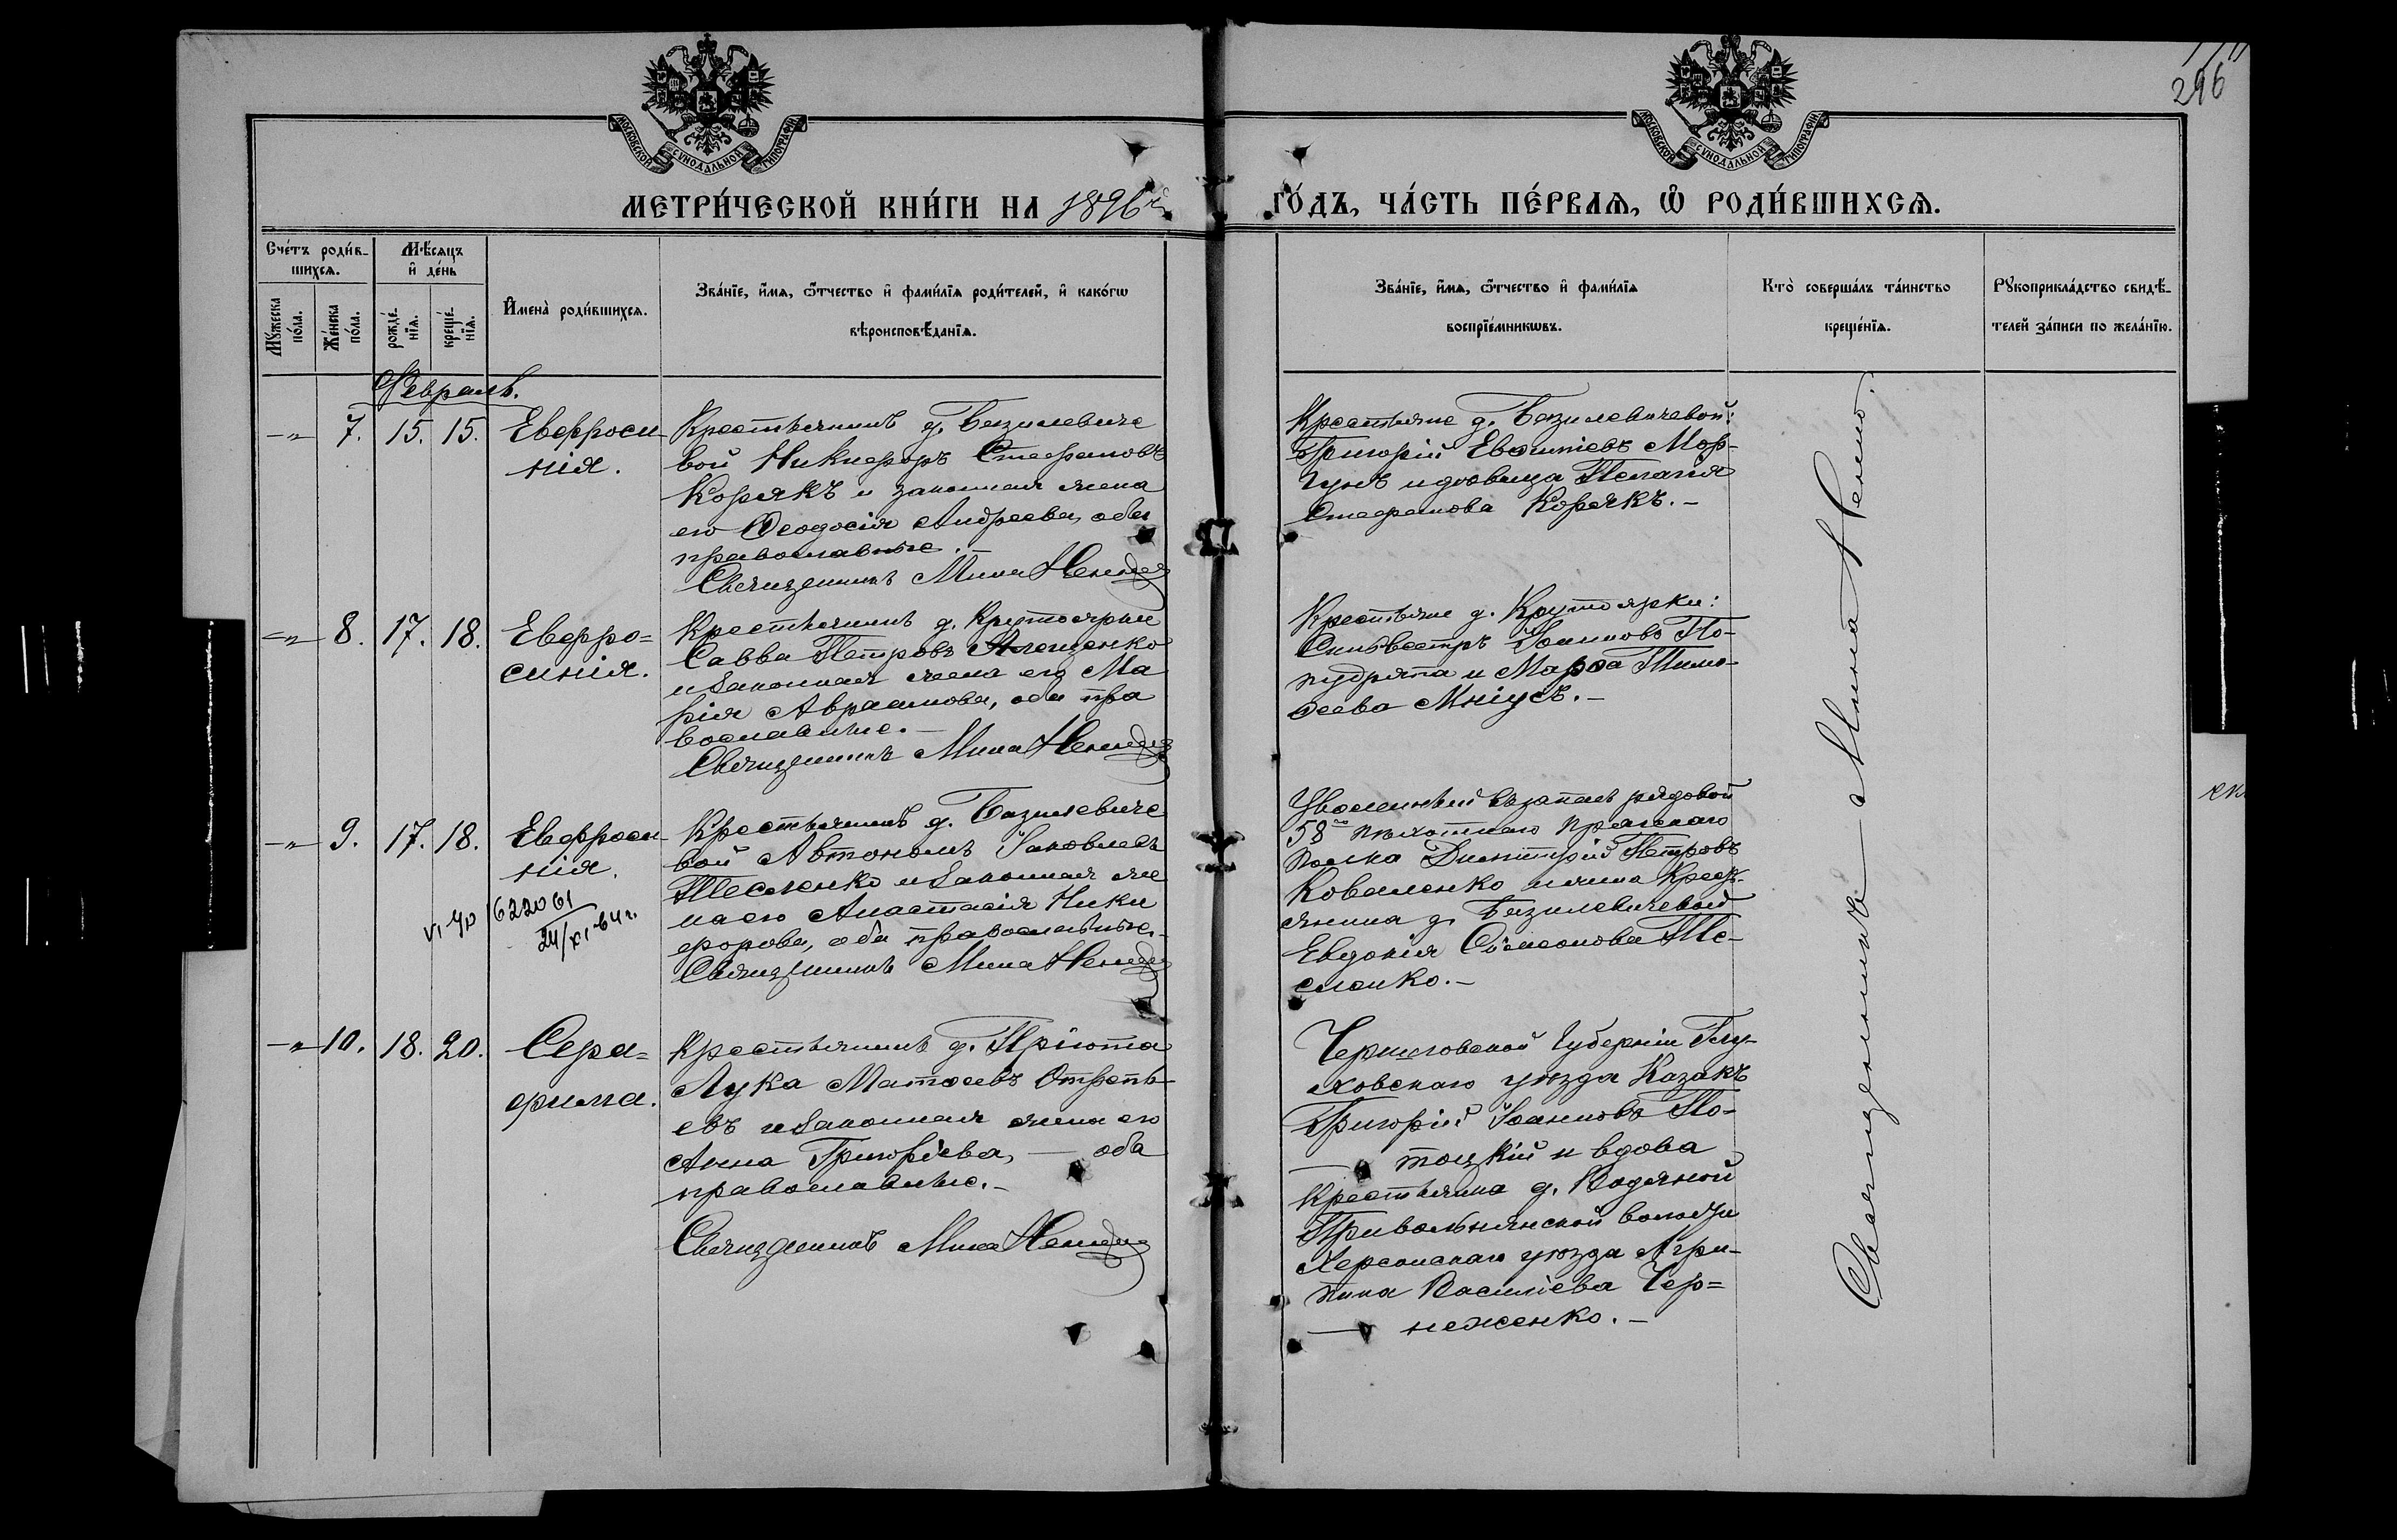 296
МОСКОВСКОЙ СУНОДАЛЬНОЙ ТИПОГРАФІИ
МОСКОВСКОЙ СУНОДАЛЬНОЙ ТИПОГРАФІИ
МЕТРИ́ЧЕСКОЙ КНИ́ГИ НА 1896й
ГО́ДЪ, ЧА́СТЬ ПЕ́РВАѦ, Ѽ РОДИ́ВШИХСѦ.
Сче́тъ роди́в-
шихсѧ.
Мѣ́сяцъ
и҆ де́нь
Мꙋ́жеска по́ла.
Же́нска по́ла.
рожде́нїѧ.
креще́нїѧ.
И҆мена̀ роди́вшихсѧ.
Зва́нїе, и҆́мѧ, ѻ҆́тчество и҆ фами́лїѧ роди́телей, и҆ како́гѡ
вѣроисповѣ́данїѧ.
Зва́нїе, и҆́мѧ, ѻ҆́тчество и҆ фами́лїѧ
воспрїе́мникѡвъ.
Кто̀ соверша́лъ та́инство
креще́нїѧ.
Рꙋкоприкла́дство свидѣ́-
телей за́писи по жела́нїю.
Февраль.
-„- 7. 15. 15.
Евфроси-
нія.
Крестьянинъ д. Базилевиче
вой Никифоръ Стефановъ
Корякъ и законная жена
его Ѳеодосія Андреева, оба
православные.-
Священникъ Мина
Крестьяне д. Базилевичевой:
Григорій Мор-
гунъ и довица Пелагія
Стефанова Корякъ.-
-„- 8. 17. 18.
Евфро=
синія.
Крестьянинъ д. Крутоярки
Савва Петровъ
и законная жена его Ма
рія Авраамова, оба пра
вославные.-
Священникъ Мина
Крестьяне д. Крутоярки:
Сильвестръ Іоанновъ По-
пудрята и Марѳа Тимо-
ѳеева
-„- 9. 17. 18.
Евфроси-
нія.
VI-ЧР 1622061
24/XI-64г.
Крестьянинъ д. Базилевиче
вой Автономъ Іаковлевъ
Тесленко и законная же
на его Анастасія Ники
форова, оба православные.-
Священникъ Мина
Уволенный въ запасъ рядовой
58го пѣхотнаго пражскаго
полка Димитрій Петровъ
Коваленко и жена крест-
янина д. Базилевичевой
Евдокія Те-
сленко.-
-„- 10. 18. 20.
Сера=
фима.
Крестьянинъ д. Пріюта
Лука Матѳеевъ Отрепь-
евъ и законная жена его
Анна Григоріева, — оба
православные.-
Священникъ Мина
Черниговской Губерніи Глу-
ховскаго уѣзда Казакъ
Григорій Іоанновъ По-
— тоцкій и вдова
крестьянка д. Водяной
Привольнянской волости
Херсонскаго уѣзда Агри-
пина Василіева Чер=
— неженко.-
Священникъ Мина